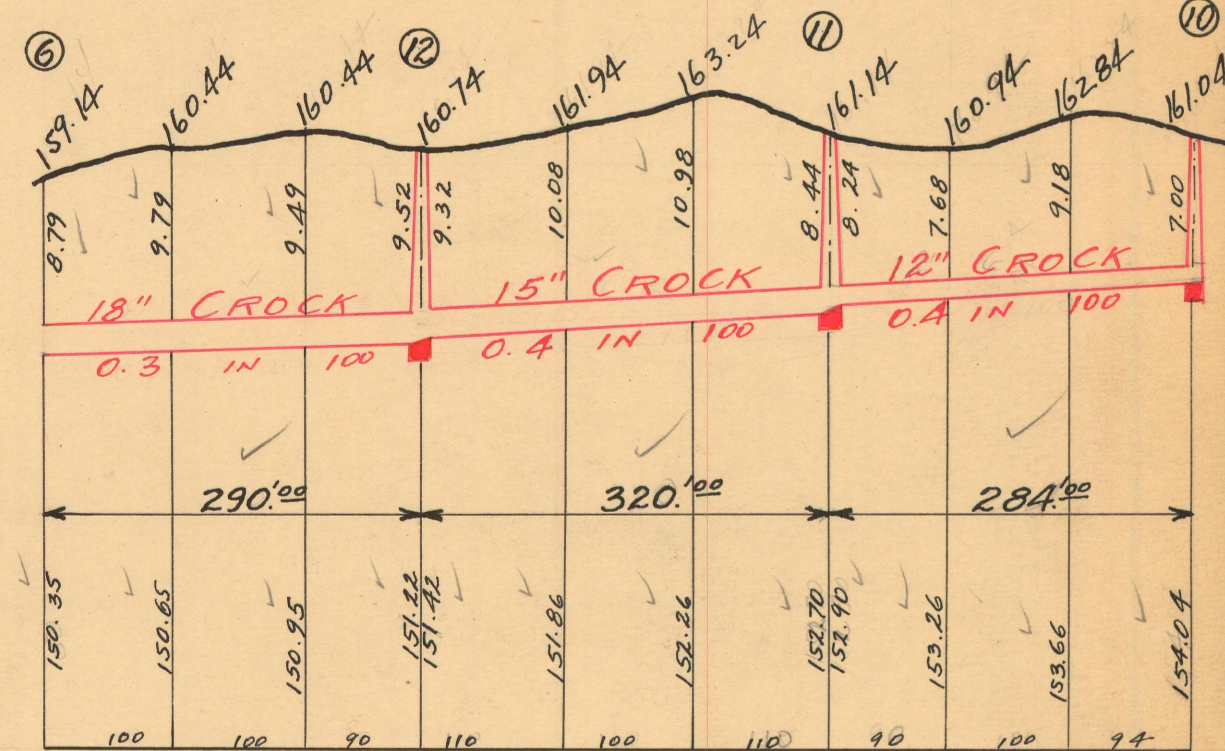 6 12 11 10
159.14 160.44 160.44 160.74 161.94 163.24 161.14 160.94 162.84 161.04
8.79 9.79 9.49 9.52 9.32 10.08 10.98 8.44 8.24 7.68 9.18 7.00
18" CROCK 15" CROCK 12" CROCK
0.3 IN 100 0.4 IN 100 0.4 IN 100
290.'00 320.'00 284.'00
150.35 150.65 150.95 151.22 151.42 151.86 152.26 152.70 152.90 153.26 153.66 154.04
100 100 90 110 100 110 90 100 94